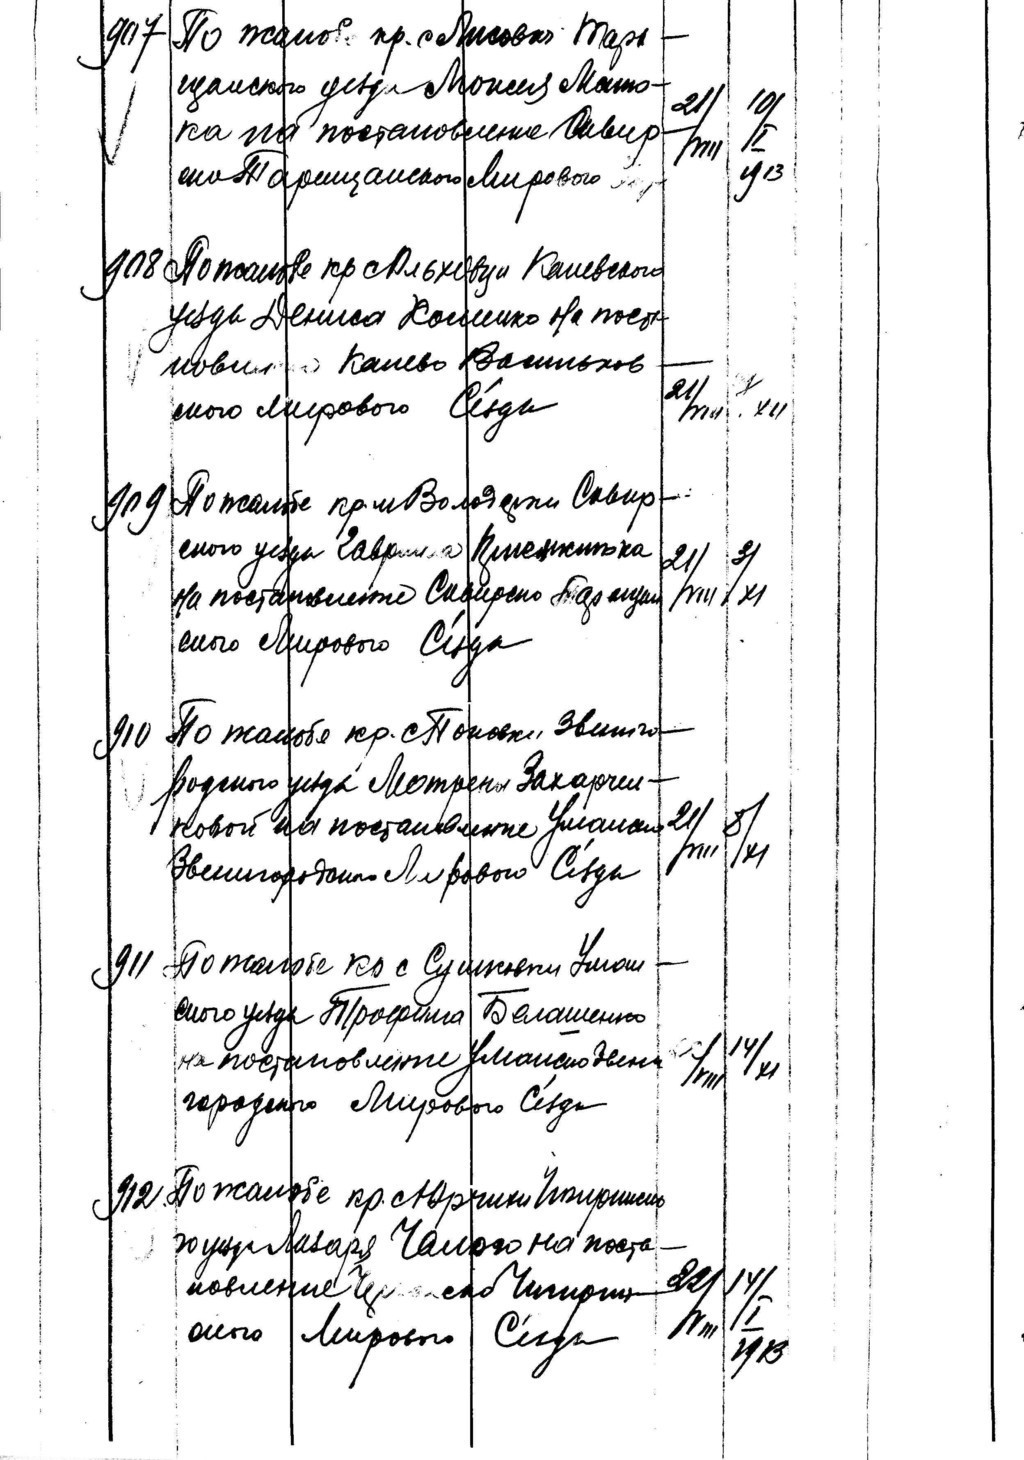 907 По жалобе кр. с Лисовки Тара
щанского уезда Моисея
ка на постановление Сквир
ско Таращанского Мирового
21/VIII 10/II 1913
908 По жалобе кр с Ольховца Каневского
уезда Дениса на поста
новление Канево Васильков
ского Мирового Сѣзда
21/VIII XII
909 По жалобе кр. м Володарки Сквир
ского уезда Гавриила
на постановление Сквирско Таращан
ского Мирового Сѣзда
21/VIII 9/XI
910 По жалобе кр. с Поповки Звениго
родского уезда Матрены Захарчен
ковой на постановление Уманско
Звенигородского Мирового Сѣзда
21/VIII 8/XI
911 По жалобе кр с Сушковки Уман
ского уезда Трофима Белашенко
на постановление Уманско Звени
городского Мирового Сѣзда
VIII 14/XI
912 По жалобе кр. с Юрчихи Чигиринско
го уезда Лазаря Чалого на поста
новление Чигирин
ского Мирового Сѣзда
22/VIII 14/I 1913